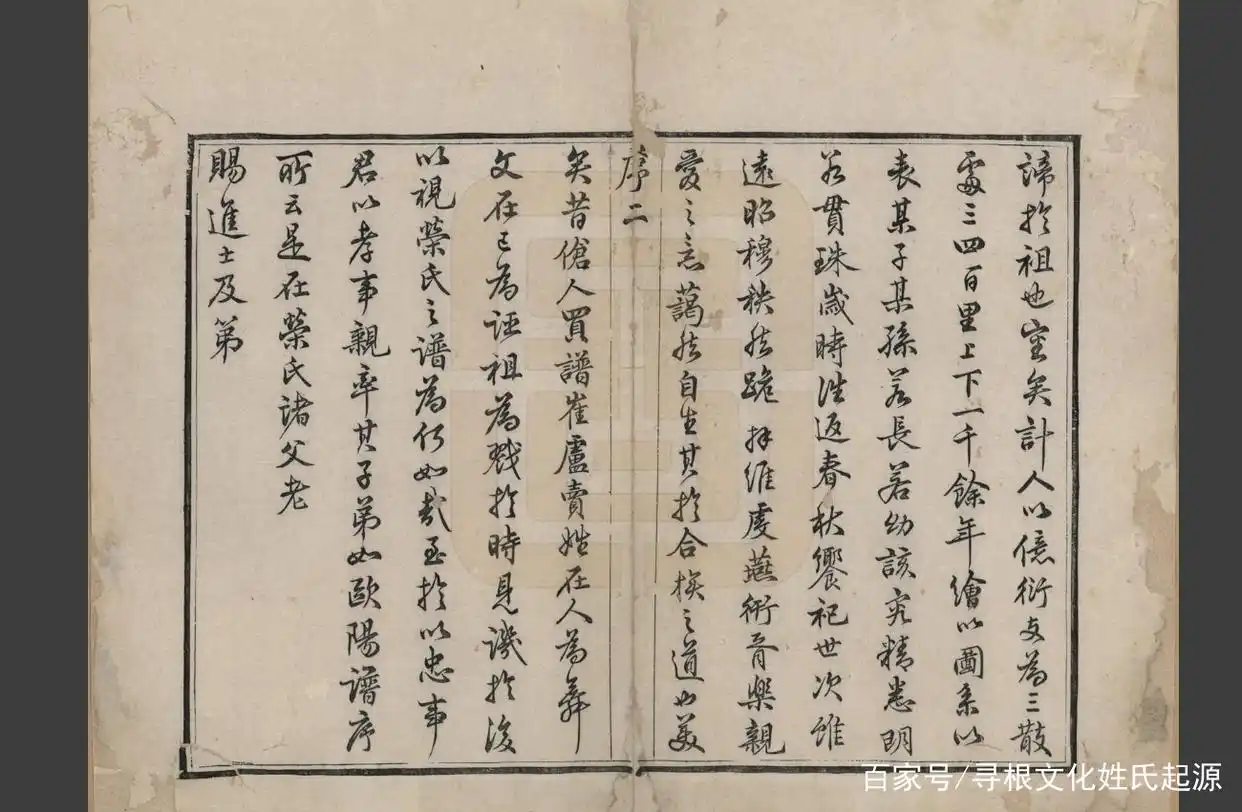 諦於祖也審矣計人以億衍支為三散
處三四百里上下一千餘年繪以圖系以
表某子某孫若長若幼該完精悉明
若貫珠歲時往返春秋饗祀世次雖
遠昭穆秩然跪拜維虔燕衎胥樂親
愛之意藹然自生其於合族之道也美
序二
矣昔傖人買譜崔盧賣姓在人為弃
文在己為誣祖為戮於時見譏於後
以視榮氏之譜為何如哉至於以忠事
君以孝事親率其子弟如歐陽譜序
所云是在榮氏諸父老
賜進士及第
百家号/寻根文化姓氏起源